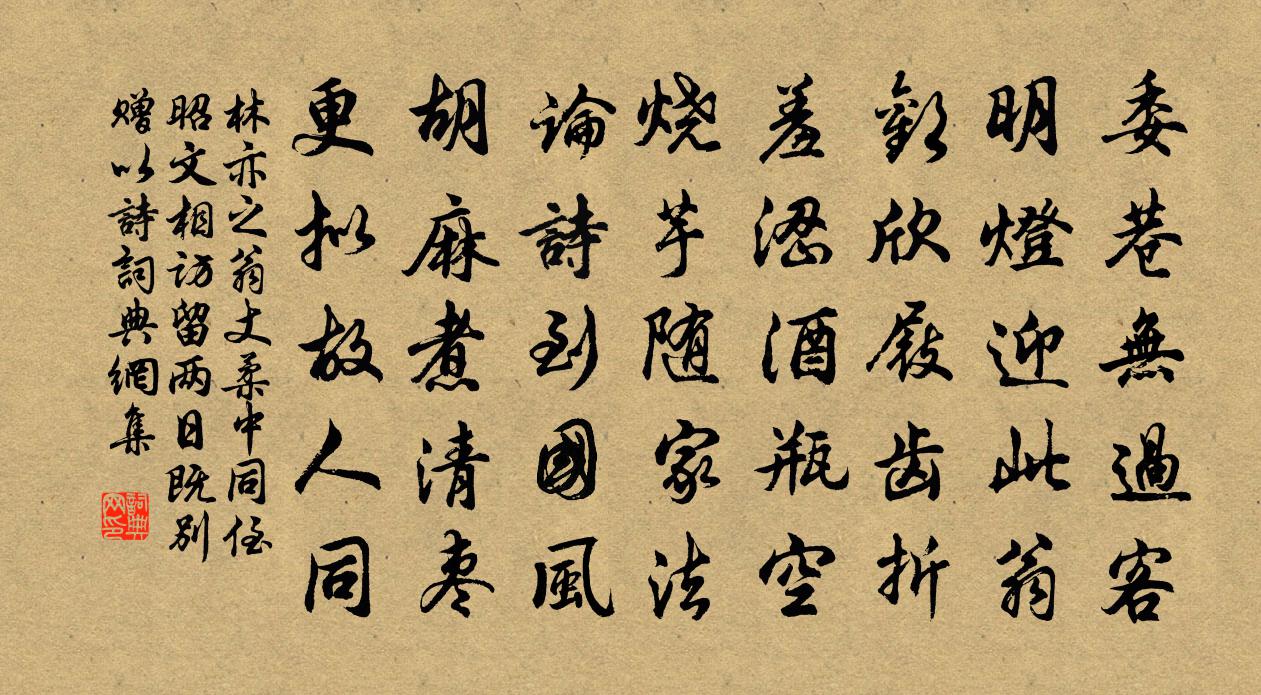 委巷無過客
明燈迎此翁
歡欣屐齿折
羞澀酒瓶空
燒芋随家法
論詩到國風
胡麻煮清枣
更拟故人同
林亦之翁丈柔中同侄
昭文相访留两日既别
赠以詩詞典網集
詞典网印